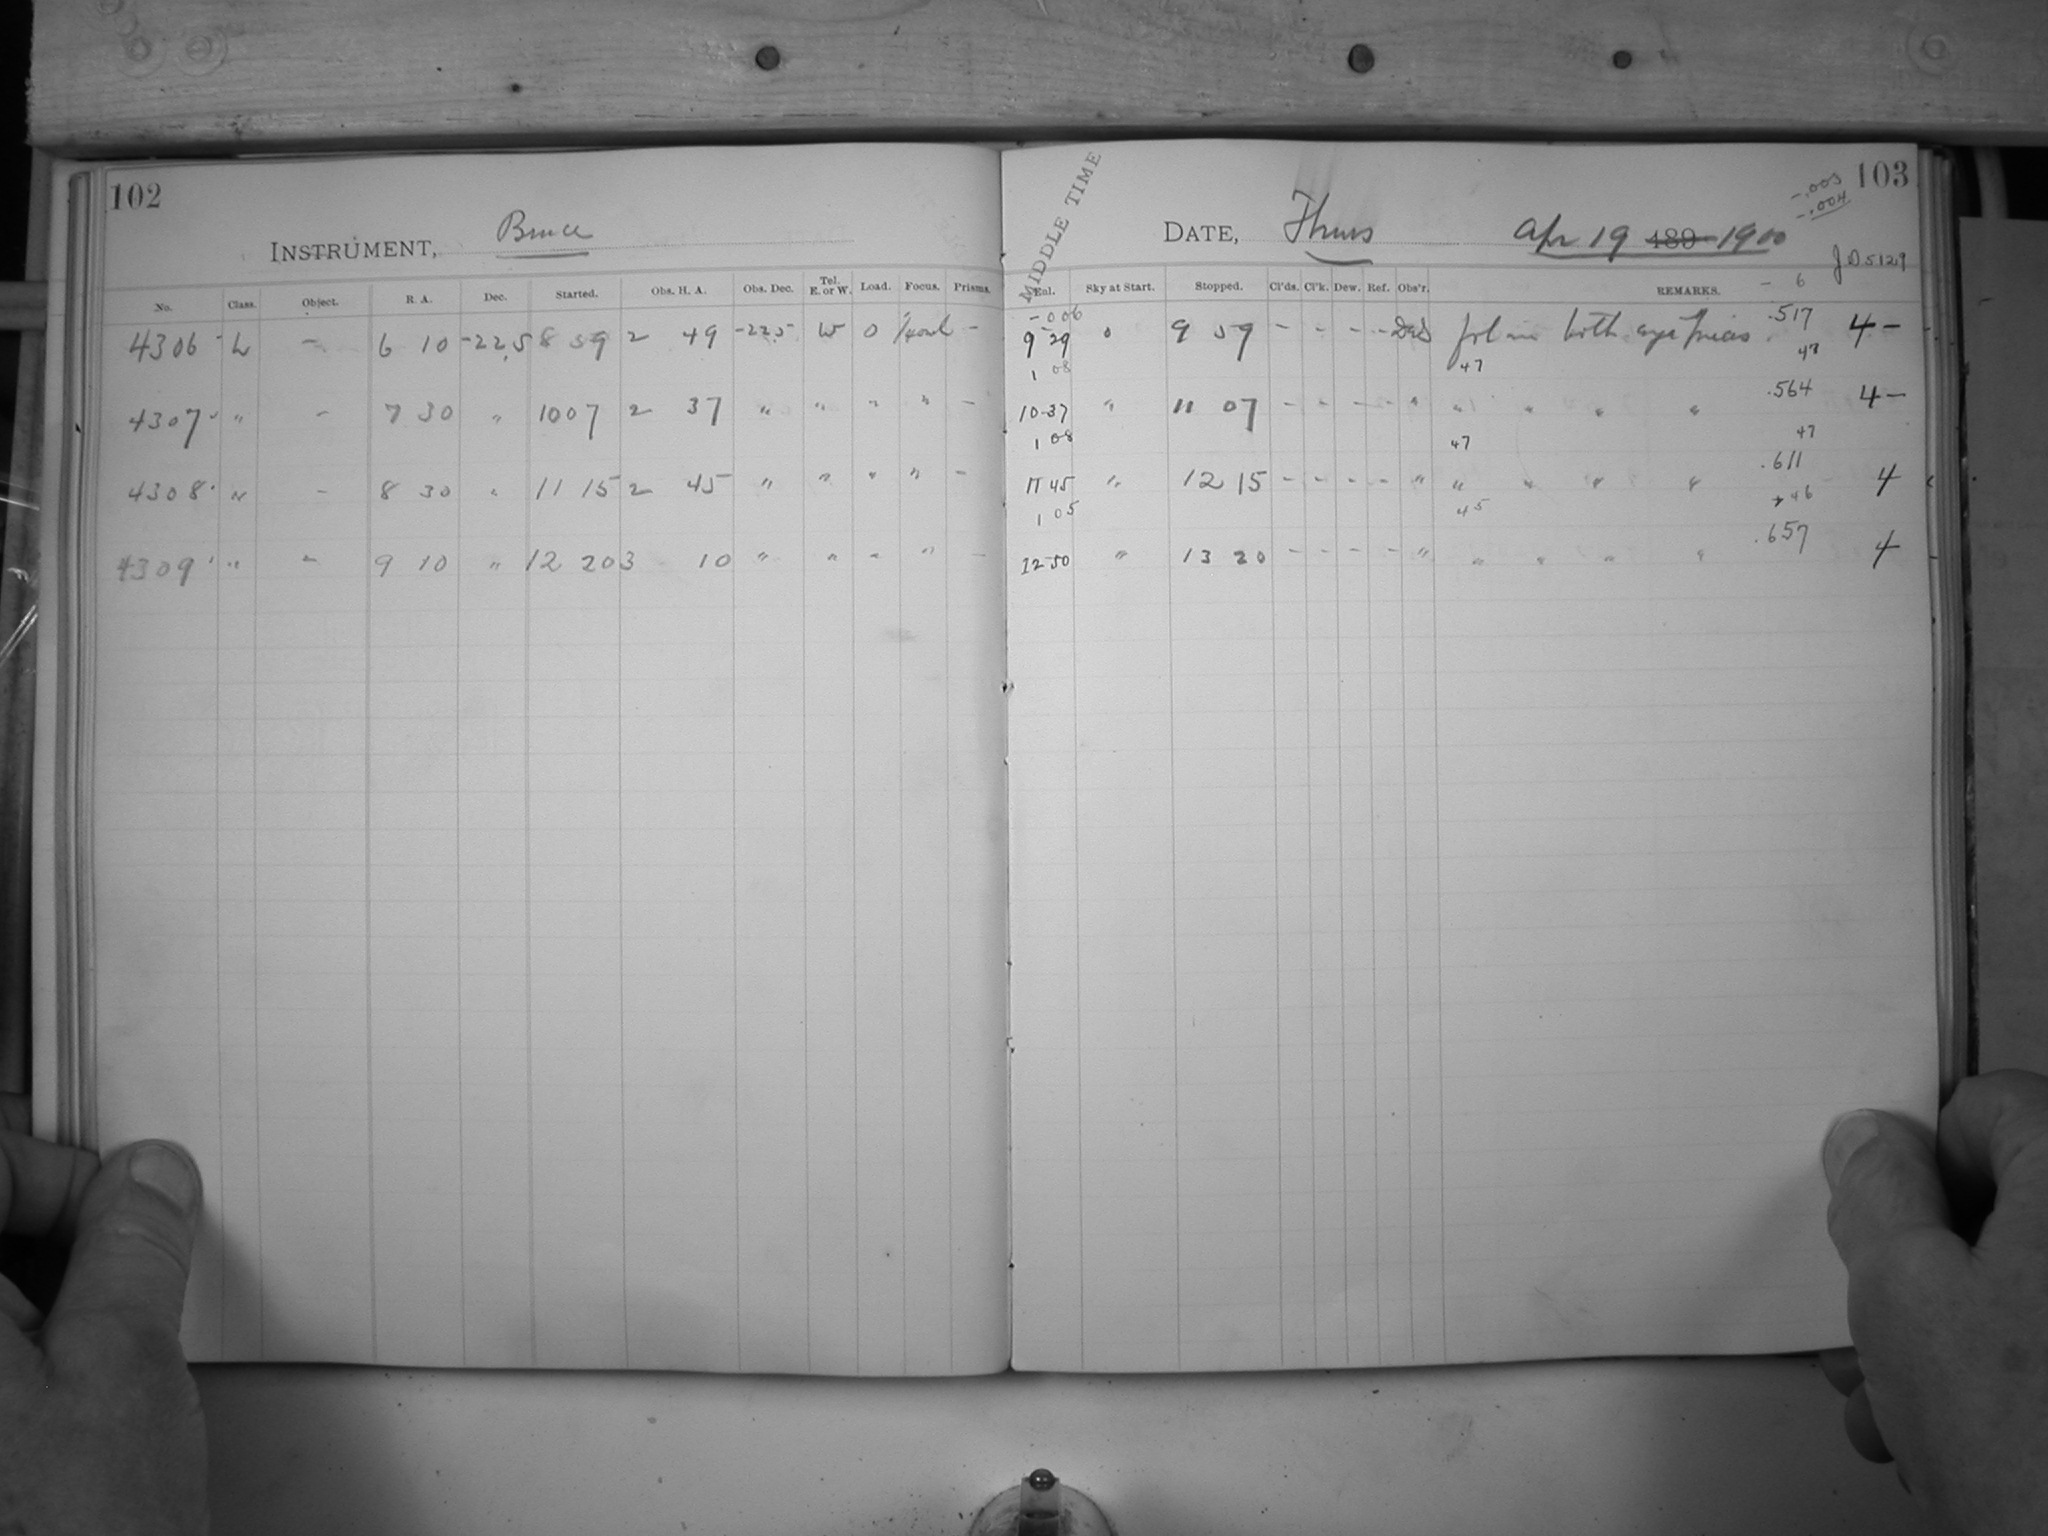 102
INSTRUMENT, Bruce
No. Class. Object. R. A. Dec. Started. Obs. H. A. Obs. Dec. Tel. E. or W. Load. Focus. Prisms.
4306 L - 6 10 -22.5 8 59 2 49 -22.5 W 0 -
4307 " - 7 30 " 10 07 2 37 " " " " -
4308 " - 8 30 " 11 15 2 45 " " " " -
4309 " - 9 10 " 12 20 3 10 " " " " -
MIDDLE TIME
103
-.003
-.004
DATE, Thurs Apr 19 189 1900
JD 5129
- 6
Enl. Sky at Start. Stopped. Cl'ds. Cl'k. Dew. Ref. Obs'r. REMARKS.
-006
9 29 0 9 59 - - - - fol in both .517 4-
1 08 47 47
10 37 " 11 07 - - - - " " " " " .564 4-
1 08 47 47
11 45 " 12 15 - - - - " " " " " .611 4
1 05 45 46
12 50 " 13 20 - - - - " " " " " .657 4